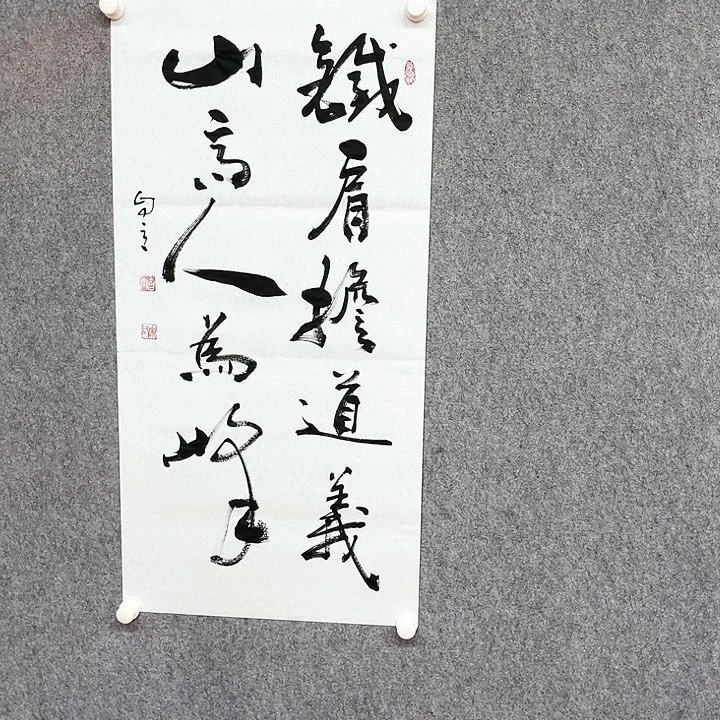 鐵肩擔道義
山高人為峰